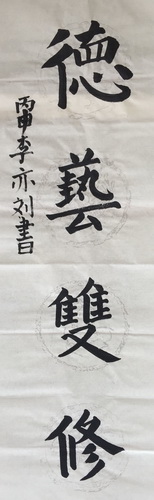 德藝雙修
丙申李亦刘書